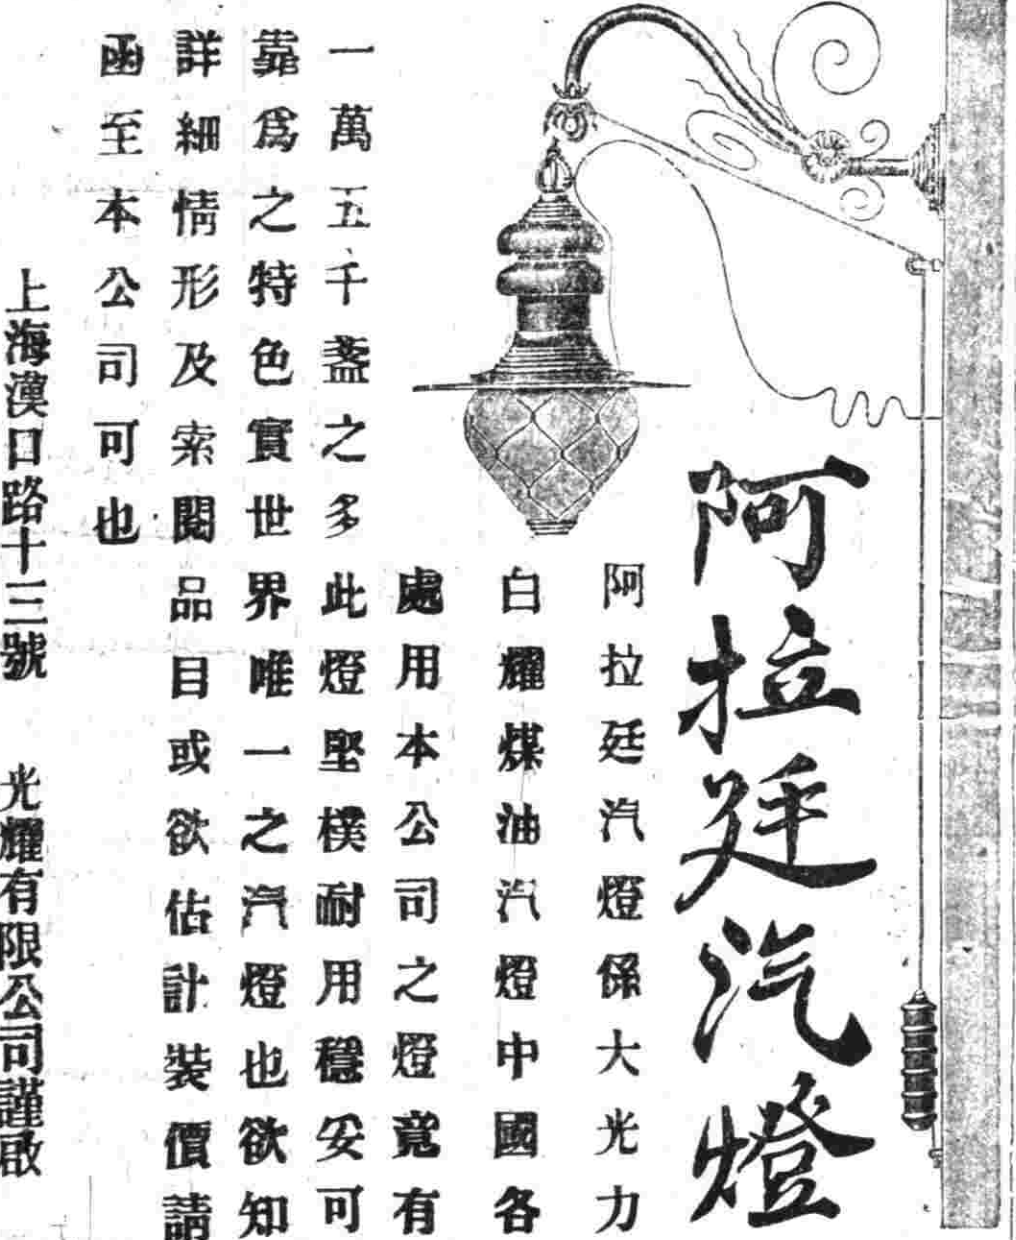 阿拉廷汽燈
阿拉廷汽燈係大光力
白耀煤油汽燈中國各
處用本公司之燈竟有
一萬五千盞之多此燈堅樸耐用穩妥可
靠爲之特色實世界唯一之汽燈也欲知
詳細情形及索閱品目或欲估計裝價請
函至本公司可也
上海漢口路十三號 光耀有限公司謹啟